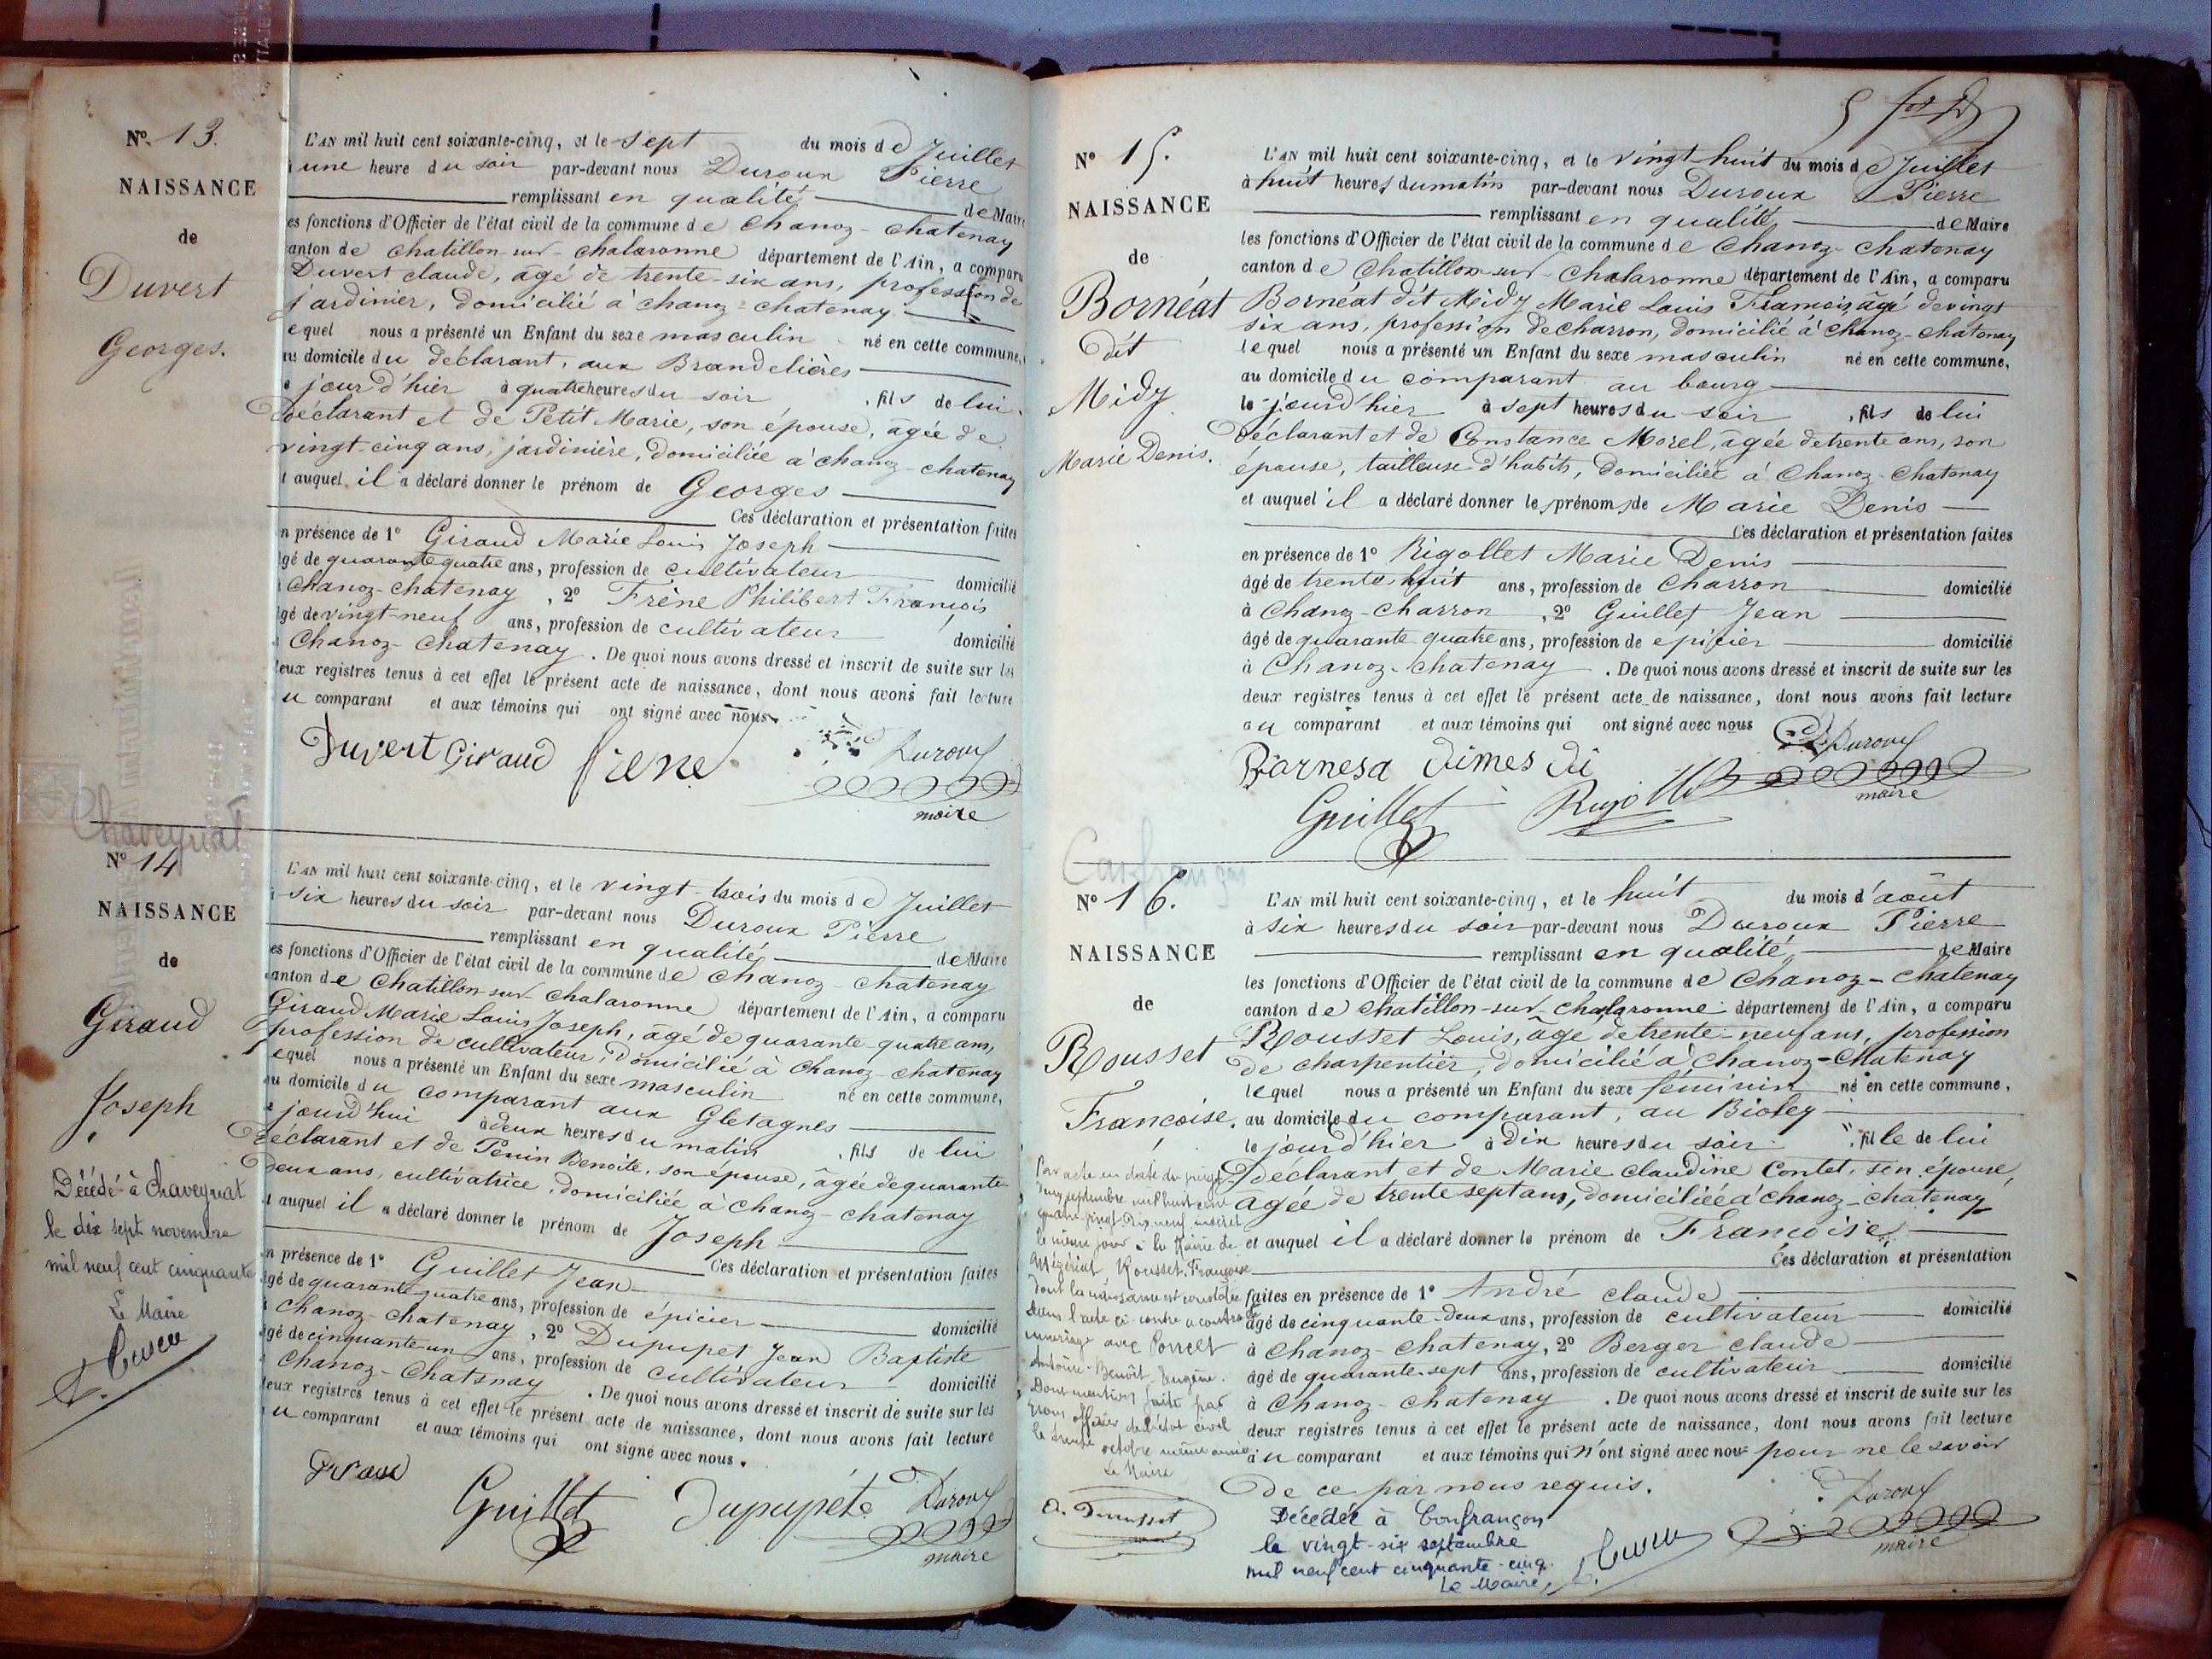 Nº 13.
NAISSANCE
de
Duvert
Georges.
L'AN mil huit cent soixante-cinq, et le sept du mois de Juillet
à une heure du soir par-devant nous Duroux Pierre
remplissant en qualité de Maire
es fonctions d'Officier de l'état civil de la commune de Chanoz-Chatenay
anton de chatillon-sur-chalaronne département de l'Ain, a comparu
Duvert claude, âgé de trente-six ans, profession de
jardinier, domicilié à chanoz-chatenay
equel nous a présenté un Enfant du sexe masculin né en cette commune,
au domicile du déclarant, aux Brandelières
e jour d'hier à quatre heures du soir, fils de lui
déclarant et de Petit Marie, son épouse, agée de
vingt-cinq ans, jardinière, domiciliée à chanoz-chatenay
t auquel il a déclaré donner le prénom de Georges
Ces déclaration et présentation faites
n présence de 1º Giraud Marie Louis Joseph
gé de quarante quatre ans, profession de cultivateur domicilié
à Chanoz-chatenay, 2º Frène Philibert François
gé de vingt-neuf ans, profession de cultivateur domicilié
Chanoz-Chatenay. De quoi nous avons dressé et inscrit de suite sur les
deux registres tenus à cet effet le présent acte de naissance, dont nous avons fait lecture
u comparant et aux témoins qui ont signé avec nous.
Duvert Giraud frene Duroux
maire
Chaveyriat
Nº 14
NAISSANCE
de
Giraud
Joseph
Décédé à Chaveyriat
le dix sept novembre
mil neuf cent cinquante
Le Maire
L'AN mil huit cent soixante-cinq, et le vingt-trois du mois de Juillet
à six heures du soir par-devant nous Duroux Pierre
remplissant en qualité de Maire
es fonctions d'Officier de l'état civil de la commune de Chanoz-chatenay
anton de Chatillon-sur-chalaronne département de l'Ain, a comparu
Giraud Marie Louis Joseph, âgé de quarante-quatre ans,
profession de cultivateur, domicilié à Chanoz-chatenay
equel nous a présenté un Enfant du sexe masculin né en cette commune,
au domicile du comparant aux Gletagnes
e jourd'hui à deux heures du matin, fils de lui
déclarant et de Penin Benoite, son épouse, âgée de quarante
deux ans, cultivatrice, domiciliée à chanoz-chatenay
t auquel il a déclaré donner le prénom de Joseph
Ces déclaration et présentation faites
n présence de 1º Guillet Jean
âgé de quarante quatre ans, profession de épicier domicilié
à chanoz-chatenay, 2º Dupupet Jean Baptiste
âgé de cinquante un ans, profession de cultivateur domicilié
Chanoz-Chatenay. De quoi nous avons dressé et inscrit de suite sur les
deux registres tenus à cet effet le présent acte de naissance, dont nous avons fait lecture
u comparant et aux témoins qui ont signé avec nous.
Guillet Dupupéte Duroux
maire
Nº 15.
NAISSANCE
de
Bornéat
dit
Midy
Marie Denis.
L'AN mil huit cent soixante-cinq, et le vingt-huit du mois de Juillet
à huit heures du matin par-devant nous Duroux Pierre
remplissant en qualité de Maire
les fonctions d'Officier de l'état civil de la commune de Chanoz-chatenay
canton de Chatillon-sur-Chalaronne département de l'Ain, a comparu
Bornéat dit Midy Marie Louis François, âgé de vingt
six ans, profession de charron, domicilié à Chanoz-chatenay
lequel nous a présenté un Enfant du sexe masculin né en cette commune,
au domicile du comparant au bourg
le jourd'hier à sept heures du soir, fils de lui
déclarant et de Constance Morel, âgée de trente ans, son
épouse, tailleuse d'habits, domiciliée à Chanoz-Chatenay
et auquel il a déclaré donner les prénoms de Marie Denis
Ces déclaration et présentation faites
en présence de 1º Rigollet Marie Denis
âgé de trente huit ans, profession de Charron domicilié
à Chanoz-Charron, 2º Guillet Jean
âgé de quarante quatre ans, profession de epicier domicilié
à Chanoz-chatenay. De quoi nous avons dressé et inscrit de suite sur les
deux registres tenus à cet effet le présent acte de naissance, dont nous avons fait lecture
au comparant et aux témoins qui ont signé avec nous
Duroux
maire
Guillet
Confrançon
Nº 16.
NAISSANCE
de
Rousset
Françoise.
L'AN mil huit cent soixante-cinq, et le huit du mois d'août
à six heures du soir par-devant nous Duroux Pierre
remplissant en qualité de Maire
les fonctions d'Officier de l'état civil de la commune de Chanoz-Chatenay
canton de Chatillon-sur-chalaronne département de l'Ain, a comparu
Rousset Louis, âgé de trente-neuf ans, profession
de charpentier, domicilié à Chanoz-Chatenay
lequel nous a présenté un Enfant du sexe féminin né en cette commune,
au domicile du comparant, au Bioley
le jourd'hier à dix heures du soir, fille de lui
déclarant et de Marie claudine Contet, son épouse,
agée de trente sept ans, domiciliée à chanoz-chatenay
et auquel il a déclaré donner le prénom de Françoise
Ces déclaration et présentation
faites en présence de 1º André claude
âgé de cinquante-deux ans, profession de cultivateur domicilié
à Chanoz-chatenay, 2º Berger claude
âgé de quarante-sept ans, profession de cultivateur domicilié
à Chanoz-chatenay. De quoi nous avons dressé et inscrit de suite sur les
deux registres tenus à cet effet le présent acte de naissance, dont nous avons fait lecture
au comparant et aux témoins qui n'ont signé avec nous pour ne le savoir
de ce par nous requis.
Duroux
maire
Par acte en date du vingt
septembre mil huit cent
quatre-vingt-dix neuf inscrit
le même jour à la Mairie de
Mézériat Rousset Françoise
dont la naissance est constatée
dans l'acte ci-contre a contracté
mariage avec
Antoine-Benoît-Eugène.
Dont mention faite par
nous officier de l'état civil
le octobre même année
Le Maire
Décédée à Confrançon
le vingt-six septembre
mil neuf cent cinquante-cinq.
Le Maire,